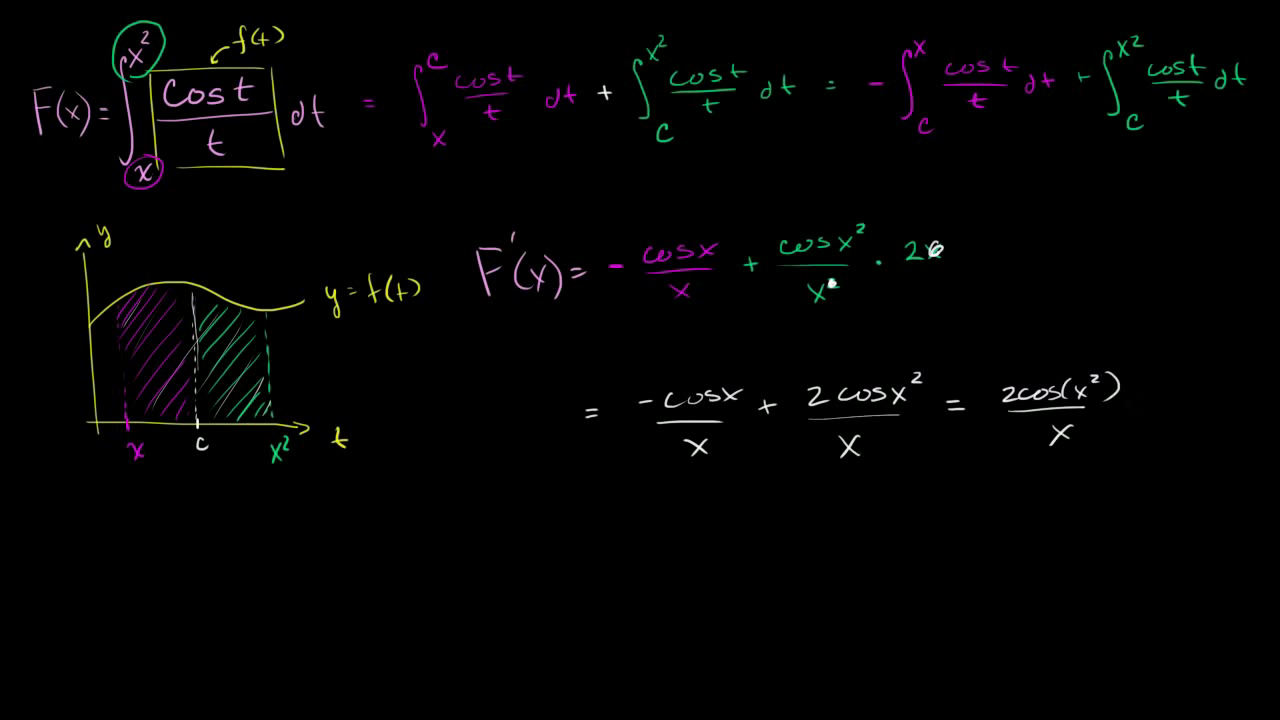 F(x) = ∫ₓ^x² cos t / t dt = ∫ₓ^c cos t / t dt + ∫_c^x² cos t / t dt = - ∫_c^x cos t / t dt + ∫_c^x² cos t / t dt
f(t)
y
y = f(t)
x c x² t
F'(x) = - cos x / x + cos x² / x² · 2x
= -cos x / x + 2 cos x² / x = 2cos(x²) / x